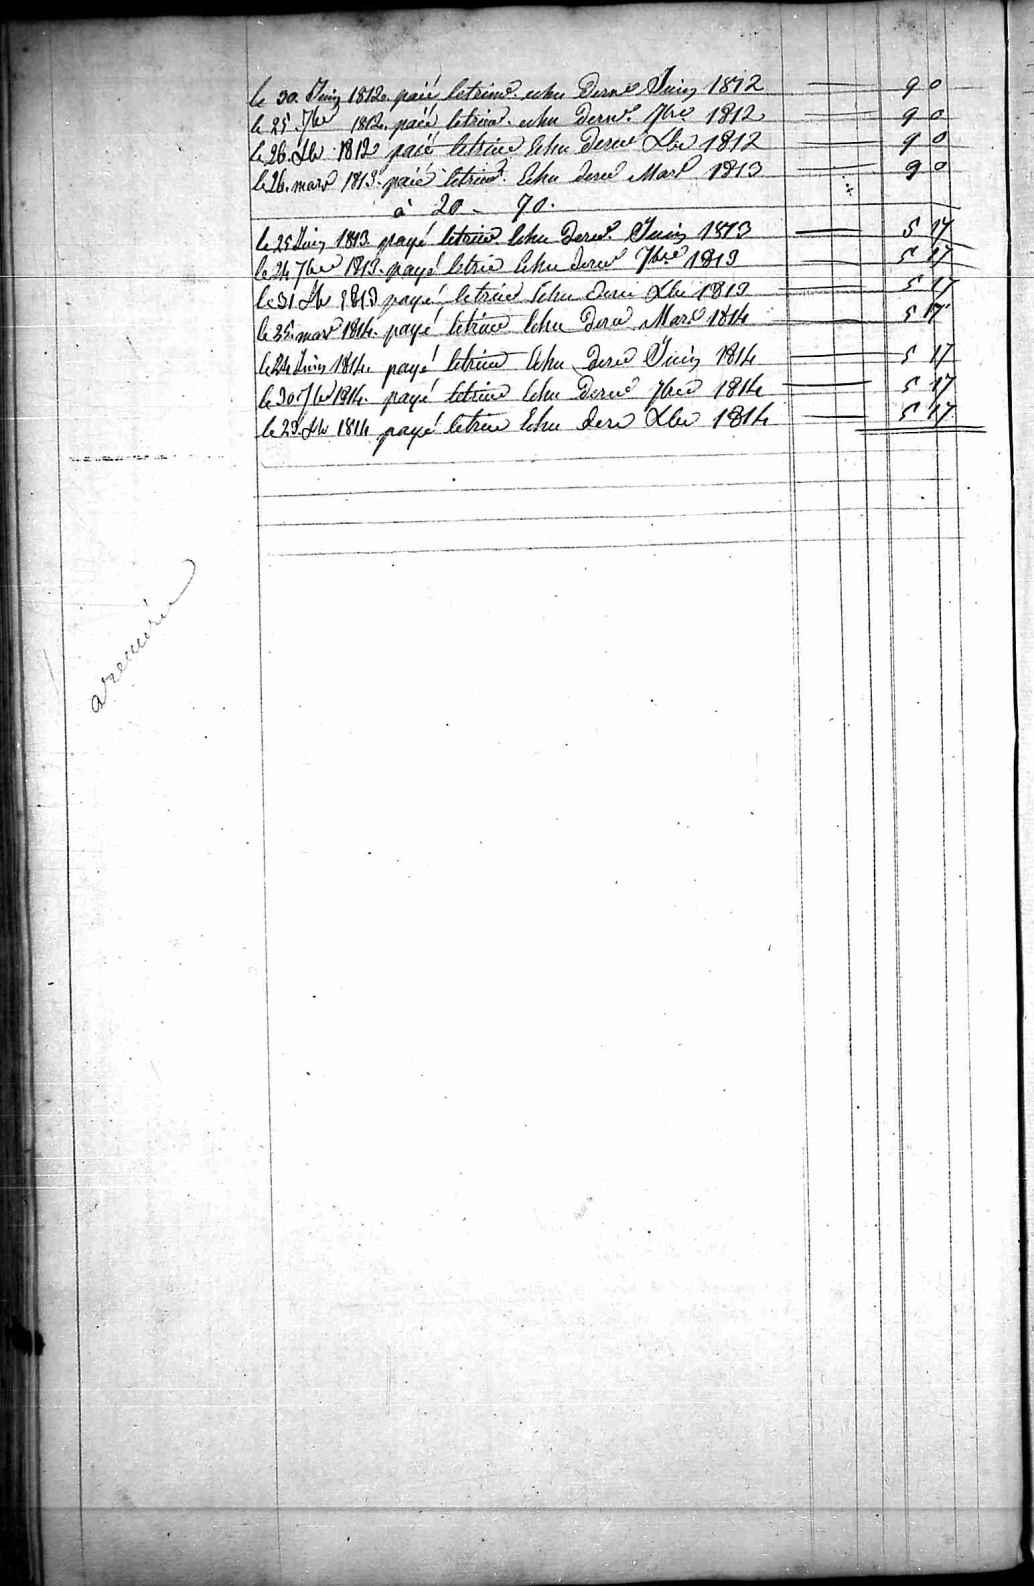 le 30. Juin 1812. paié le trimre. echu derne Juin 1812 9 0
le 25 7bre 1812. paié le trimre. echu dernr. 7bre 1812 9 0
le 26. Xbr 1812 paié le trime Echu derne Xbre 1812 9 0
le 26. mars 1813. paié le trimre. Echu derne Mars 1813 9 0
à 20 - 70.
le 25 Juin 1813 payé le trime. Echu derne. Juin 1813 5 17
le 24 7bre 1813. payé le trie Echu derne 7bre 1813 5 17
le 31 Xbr 1813 payé le trime Echu derne Xbre 1813 5 17
le 25. mars 1814. payé le trime Echu derne Mars 1814 5 17
le 24 Juin 1814. payé le trime Echu derne Juin 1814 5 17
le 30. 7bre 1814. payé le trime Echu derne 7bre 1814 5 17
le 29. Xbr 1814 payé le trime Echu dere Xbre 1814 5 17